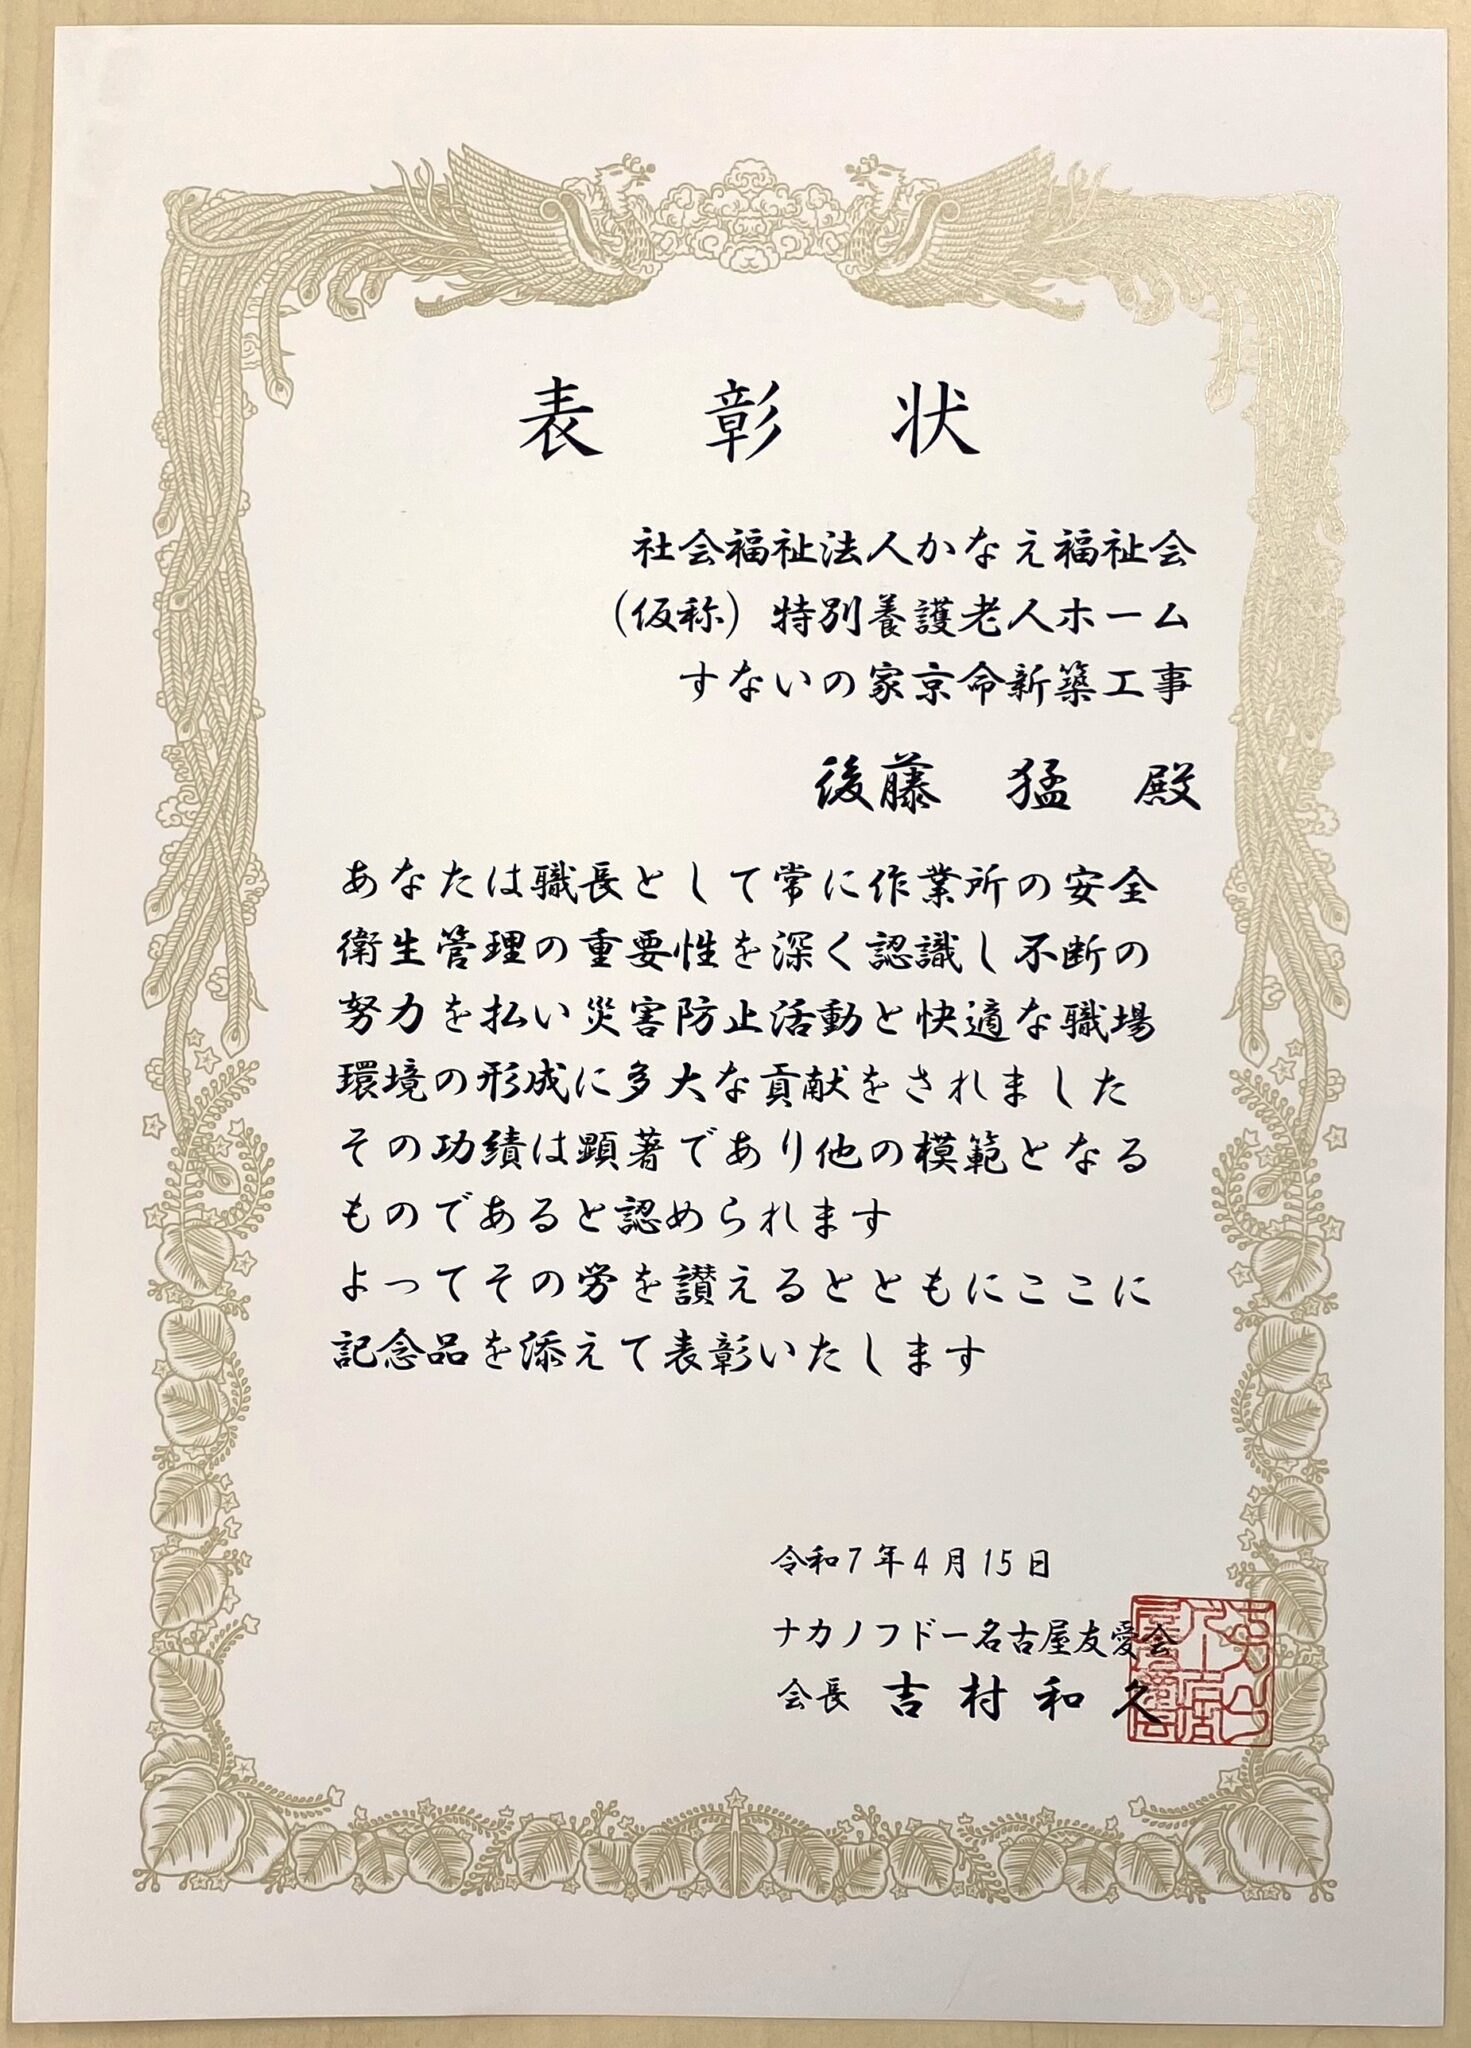 表彰状
社会福祉法人かなえ福祉会
(仮称) 特別養護老人ホーム
すないの家京命新築工事
後藤 猛 殿
あなたは職長として常に作業所の安全
衛生管理の重要性を深く認識し不断の
努力を払い災害防止活動と快適な職場
環境の形成に多大な貢献をされました
その功績は顕著であり他の模範となる
ものであると認められます
よってその労を讃えるとともにここに
記念品を添えて表彰いたします
令和7年4月15日
ナカノフドー名古屋友愛会
会長 吉村和久